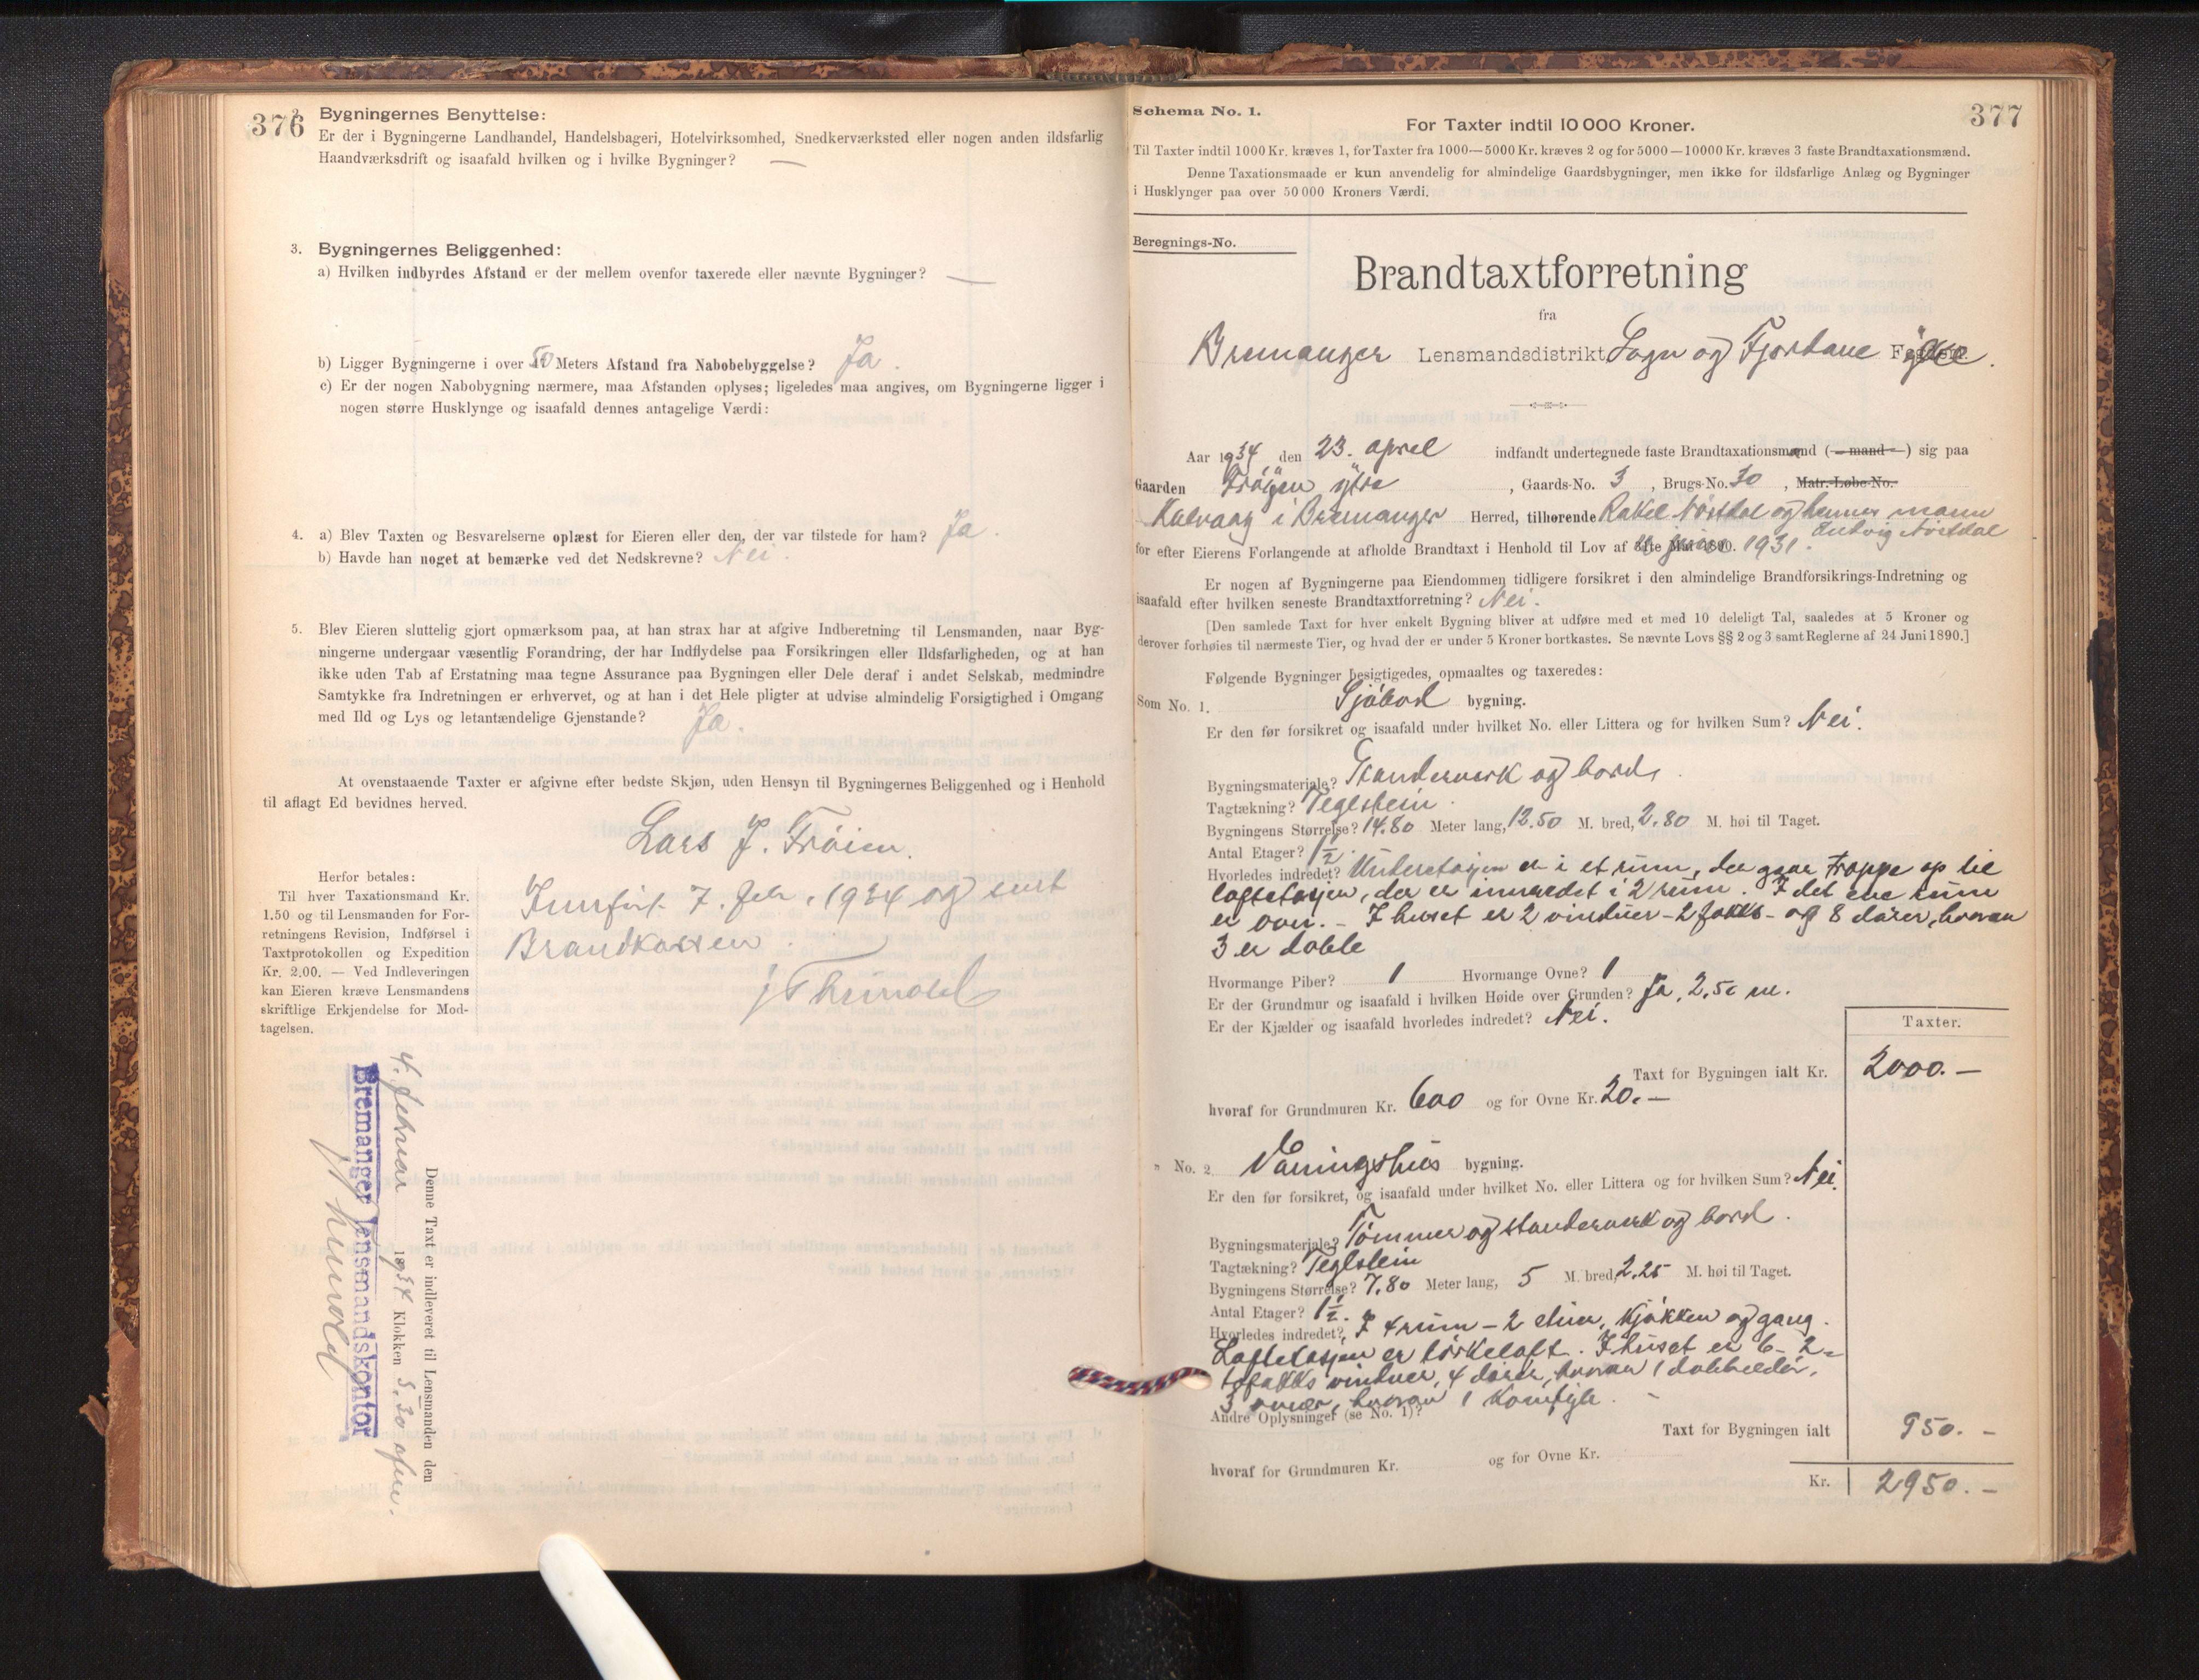 376
2. Bygningernes Benyttelse:
Er der i Bygningerne Landhandel, Handelsbageri, Hotelvirksomhed, Snedkerværksted eller nogen anden ildsfarlig
Haandværksdrift og isaafald hvilken og i hvilke Bygninger? —
3. Bygningernes Beliggenhed:
a) Hvilken indbyrdes Afstand er der mellem ovenfor taxerede eller nævnte Bygninger? —
b) Ligger Bygningerne i over 50 Meters Afstand fra Nabobebyggelse? Ja.
c) Er der nogen Nabobygning nærmere, maa Afstanden oplyses; ligeledes maa angives, om Bygningerne ligger i
nogen større Husklynge og isaafald dennes antagelige Værdi:
4. a) Blev Taxten og Besvarelserne oplæst for Eieren eller den, der var tilstede for ham? Ja.
b) Havde han noget at bemærke ved det Nedskrevne? Nei.
5. Blev Eieren sluttelig gjort opmærksom paa, at han strax har at afgive Indberetning til Lensmanden, naar Byg-
ningerne undergaar væsentlig Forandring, der har Indflydelse paa Forsikringen eller Ildsfarligheden, og at han
ikke uden Tab af Erstatning maa tegne Assurance paa Bygningen eller Dele deraf i andet Selskab, medmindre
Samtykke fra Indretningen er erhvervet, og at han i det Hele pligter at udvise almindelig Forsigtighed i Omgang
med Ild og Lys og letantændelige Gjenstande? Ja.
At ovenstaaende Taxter er afgivne efter bedste Skjøn, uden Hensyn til Bygningernes Beliggenhed og i Henhold
til aflagt Ed bevidnes herved.
Lars J. Frøien.
Herfor betales:
Til hver Taxationsmand Kr.
1.50 og til Lensmanden for For-
retningens Revision, Indførsel i
Taxtprotokollen og Expedition
Kr. 2.00. — Ved Indleveringen
kan Eieren kræve Lensmandens
skriftlige Erkjendelse for Mod-
tagelsen.
Innført 7. febr. 1934 og sendt
Brandkassen.
Denne Taxt er indleveret til Lensmanden den
4. februar 1934 Klokken 5.30 efm.
Bremanger lensmandskontor
377
Schema No. 1.
For Taxter indtil 10 000 Kroner.
Til Taxter indtil 1000 Kr. kræves 1, for Taxter fra 1000—5000 Kr. kræves 2 og for 5000—10000 Kr. kræves 3 faste Brandtaxationsmænd.
Denne Taxationsmaade er kun anvendelig for almindelige Gaardsbygninger, men ikke for ildsfarlige Anlæg og Bygninger
i Husklynger paa over 50 000 Kroners Værdi.
Beregnings-No.
Brandtaxtforretning
fra
Bremanger Lensmandsdistrikt Sogn og Fjordane Fylke.
Aar 1934 den 23. april indfandt undertegnede faste Brandtaxationsmænd (—mand—) sig paa
Gaarden Frøyen ytre, Gaards-No. 3, Brugs-No. 30, Matr.-Løbe-No.
Kalvaag i Bremanger Herred, tilhørende Rakel Nøstdal og hennes mann
Ludvig Nøstdal
for efter Eierens Forlangende at afholde Brandtaxt i Henhold til Lov af 1931.
Er nogen af Bygningerne paa Eiendommen tidligere forsikret i den almindelige Brandforsikrings-Indretning og
isaafald efter hvilken seneste Brandtaxtforretning? Nei.
[Den samlede Taxt for hver enkelt Bygning bliver at udføre med et med 10 deleligt Tal, saaledes at 5 Kroner og
derover forhøies til nærmeste Tier, og hvad der er under 5 Kroner bortkastes. Se nævnte Lovs §§ 2 og 3 samt Reglerne af 24 Juni 1890.]
Følgende Bygninger besigtigedes, opmaaltes og taxeredes:
Som No. 1. Sjøbod bygning.
Er den før forsikret og isaafald under hvilket No. eller Littera og for hvilken Sum? Nei.
Bygningsmateriale? Standerverk og bord.
Tagtækning? Teglstein.
Bygningens Størrelse? 14.80 Meter lang, 12.50 M. bred, 2.80 M. høi til Taget.
Antal Etager? 1½.
Hvorledes indredet? Underetasjen er i et rum, der gaar trappe op til
loftetasjen, der er innredet i 2 rum. I det ene rum
er ovn. - I huset er 2 vinduer - 2 fakks - og 8 dører, hvorav
3 er doble
Hvormange Piber? 1 Hvormange Ovne? 1
Er der Grundmur og isaafald i hvilken Høide over Grunden? Ja, 2,50 m.
Er der Kjælder og isaafald hvorledes indredet? Nei.
Taxter.
Taxt for Bygningen ialt Kr. 2000.—
hvoraf for Grundmuren Kr. 600 og for Ovne Kr. 20.—
" No. 2. Våningshus bygning.
Er den før forsikret, og isaafald under hvilket No. eller Littera og for hvilken Sum? Nei.
Bygningsmateriale? Tømmer og standerverk og bord.
Tagtækning? Teglstein
Bygningens Størrelse? 7.80 Meter lang, 5 M. bred, 2.25 M. høi til Taget.
Antal Etager? 1½.
Hvorledes indredet? I 4 rum - 2 stuer, kjøkken og gang.
Loftetasjen er tørkeloft. I huset er 6 - 2 -
fakks vinduer, 4 dører, hvorav 1 dobbeldør.
3 ovner, hvorav 1 komfyr.
Andre Oplysninger (se No. 1)?
Taxt for Bygningen ialt 950.-
hvoraf for Grundmuren Kr. og for Ovne Kr.
Kr. 2950.-